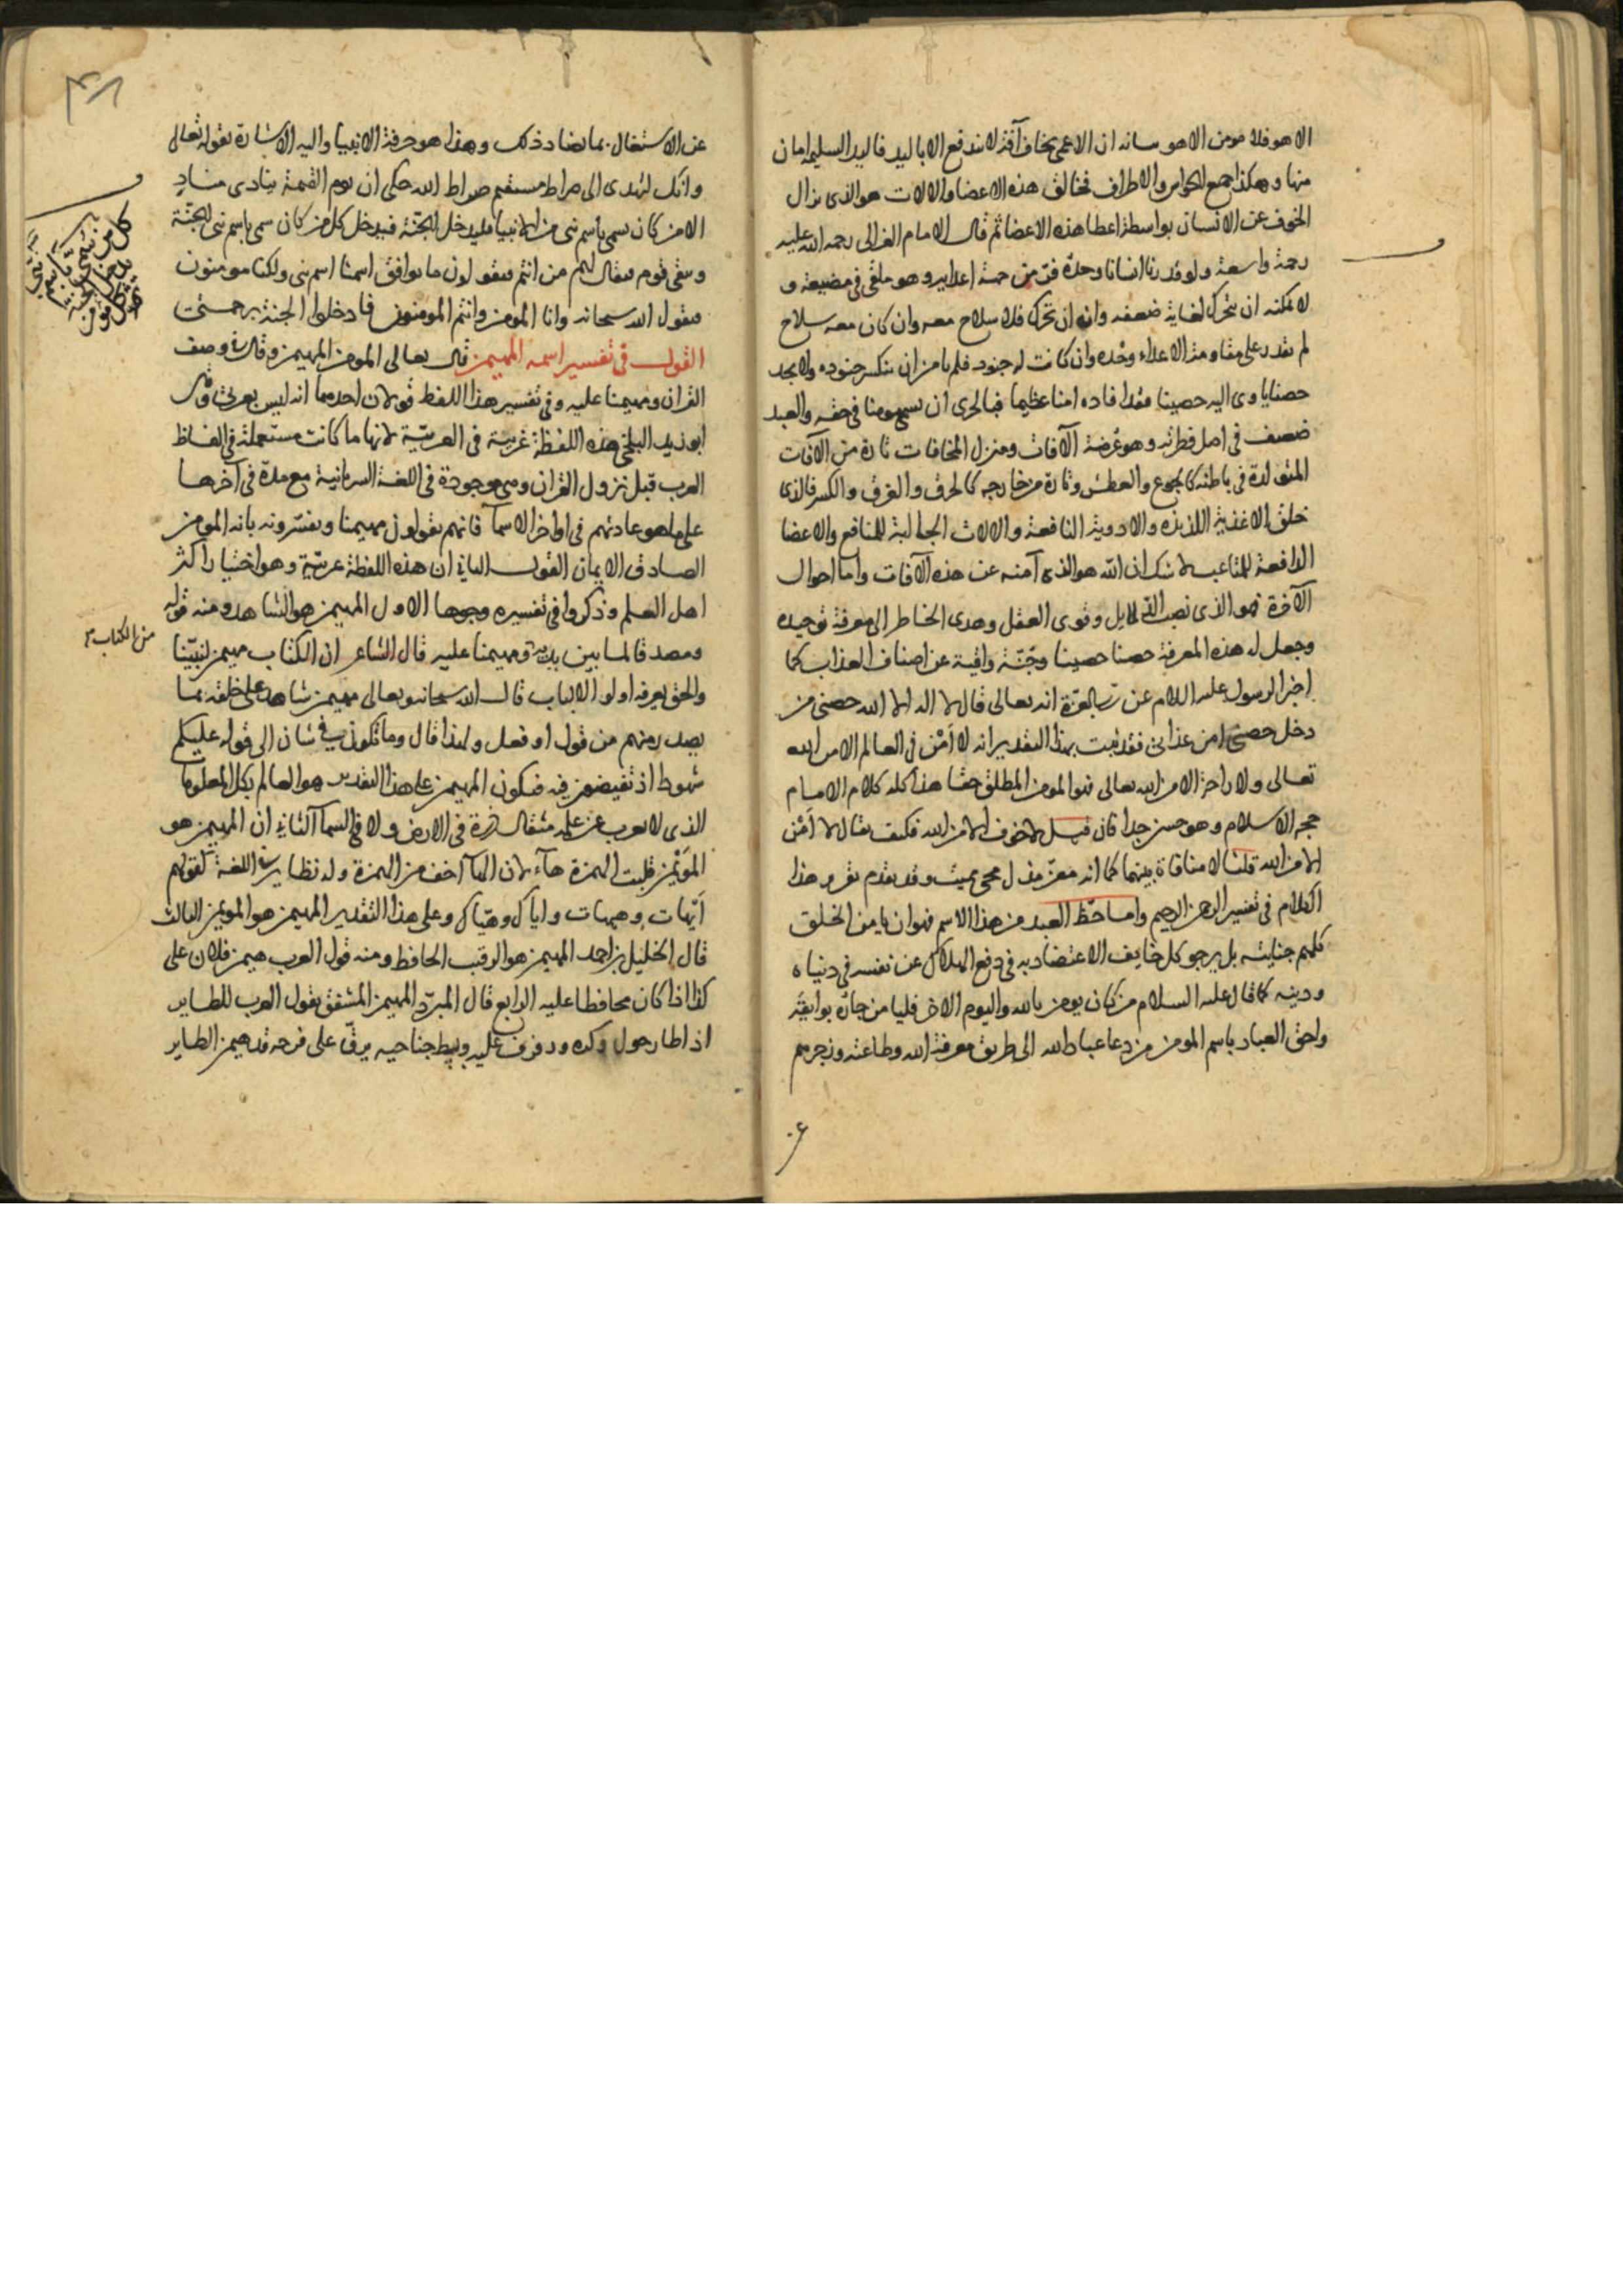 الا هو فلا مومن الا هو بيانه ان الاعمى يخاف آفة لا تندفع الا باليد فاليد السليمة امان
منها وهكذا جميع الحواس والاطراف فخالق هذه الاعضا والالات هو الذى يزال
الخوف عن الانسان بواسطة اعطا هذه الاعضا ثم قال الامام الغزالى رحمه الله عليه
رحمة واسعة ولو قدرنا انسانا وحده فى من اعدايه وهو ملقى فى مضيعة و
لا يمكنه ان يتحرك لغاية ضعفه وان تحرك فلا سلاح معه وان كان معه سلاح
لم يقدر على مقاومة الاعداء وحده وان كانت له جنود فلم يامن ان ينكسر جنوده ولا يجد
حصنا ياوى اليه حصينا افاده امنا عظيما فبالحرى ان يسمى مومنا فى حقه والعبد
ضعيف فى اصل فطرته وهو عرضة الآفات ومنزل المخافات تارة من الآفات
المتولدة فى باطنه كالجوع والعطش وتارة من خارجه كالحرق والغرق والكسر فالذى
خلق الاغذية اللذيذة والادوية النافعة والالات الجالبة للمنافع والاعضا
الدافعة للمتاعب لا شك ان الله هو الذى آمنه عن هذه الآفات واما احوال
الآخرة فهو الذى نصب الدلايل وقوى العقل وهدى الخاطر الى معرفة توحيده
وجعل له هذه المعرفة حصنا حصينا وجنّة واقية عن اصناف العذاب كما
اخبر الرسول عليه السلام عن رب العزة انه تعالى قال لا اله الا الله حصنى من
دخل حصنى امن عذابى فقد ثبت بهذا التقدير انه لا أمن فى العالم الا من الله
تعالى ولا راحة الا من الله تعالى فهو المومن المطلق حقا هذا كله كلام الامام
حجه الاسلام وهو حسن جدا فان قيل لا خوف الا من الله فكيف يقال لا أمن
الا من الله قلنا لا منافاة بينهما كما انه معز مذل محيى مميت وقد تقدم تقرير هذا
الكلام فى تفسير الرحمن الرحيم واما حظ العبد من هذا الاسم فهو ان يامن الخلق
كلهم جنايته بل يرجو كل خايف الاعتضاد به فى دفع الهلاك عن نفسه فى دنياه
ودينه كما قال عليه السلام من كان يومن بالله واليوم الاخر فليامن جاره بوايقه
واحق العباد باسم المومن من دعا عباد الله الى طريق معرفة الله وطاعته وزجرهم
عن الاشتغال بما يضاد ذلك وهذا هو حرفة الانبيا واليه الاشارة بقوله تعالى
وانك لتهدى الى صراط مستقيم صراط الله حكى ان يوم القيمة ينادى منادٍ
الا من كان سمى باسم نبى من الانبيا فليدخل الجنة فيدخل كل من كان سمى باسم نبى الجنّة
ويبقى قوم فيقال لهم من انتم فيقولون ما يوافق اسمنا اسم نبى ولكنا مومنون
فيقول الله سبحانه وانا المومن وانتم المومنون فادخلوا الجنة برحمتى
القول فى تفسير اسمه المهيمن قال تعالى المومن المهيمن وقال فى وصف
القران ومهيمنا عليه وفى تفسير هذا اللفظ قولان احدهما انه ليس بعربى قال
ابو زيد البلخى هذه اللفظة غريبة فى العربيّة لانها ما كانت مستعملة فى الفاظ
العرب قبل نزول القران وهى موجودة فى اللغة السريانية مع مدة فى آخرها
على ما هو عادتهم فى اواخر الاسما فانهم يقولون مهيمنا ويفسّرونه بانه المومن
الصادق الايمان القول الثانى ان هذه اللفظة عربيّة وهو اختيار اكثر
اهل العلم وذكروا فى تفسيره وجوها الاول المهيمن هو الشاهد ومنه قوله
ومصدقا لما بين يديه ومهيمنا عليه قال الشاعر ان الكتاب مهيمن لنبيّنا
من الكتاب
والحق يعرفه اولوا الالباب قال الله سبحانه وتعالى مهيمن شاهد على خلقه بما
يصدر منهم من قول او فعل ولهذا قال وما تكون فى شان الى قوله عليكم
شهودا اذ تفيضون فيه فيكون المهيمن على هذا التقدير هو العالم بكل المعلومات
الذى لا يعزب عن علمه مثقال ذرة فى الارض ولا فى السما الثانى ان المهيمن هو
المؤيمن قلبت الهمزة هاء لان الها اخف من الهمزة وله نظاير فى اللغة كقولهم
ايهات وهيهات واياك وهياك وعلى هذا التقدير المهيمن هو المويمن الثالث
قال الخليل بن احمد المهيمن هو الرقيب الحافظ ومنه قول العرب هيمن فلان على
كذا اذا كان محافظا عليه الرابع قال المبرّد المهيمن المشفق يقول العرب للطاير
اذا طار حول وكره ورفرف عليه وبسط جناحيه يرفّ على فرخه قد هيمن الطاير